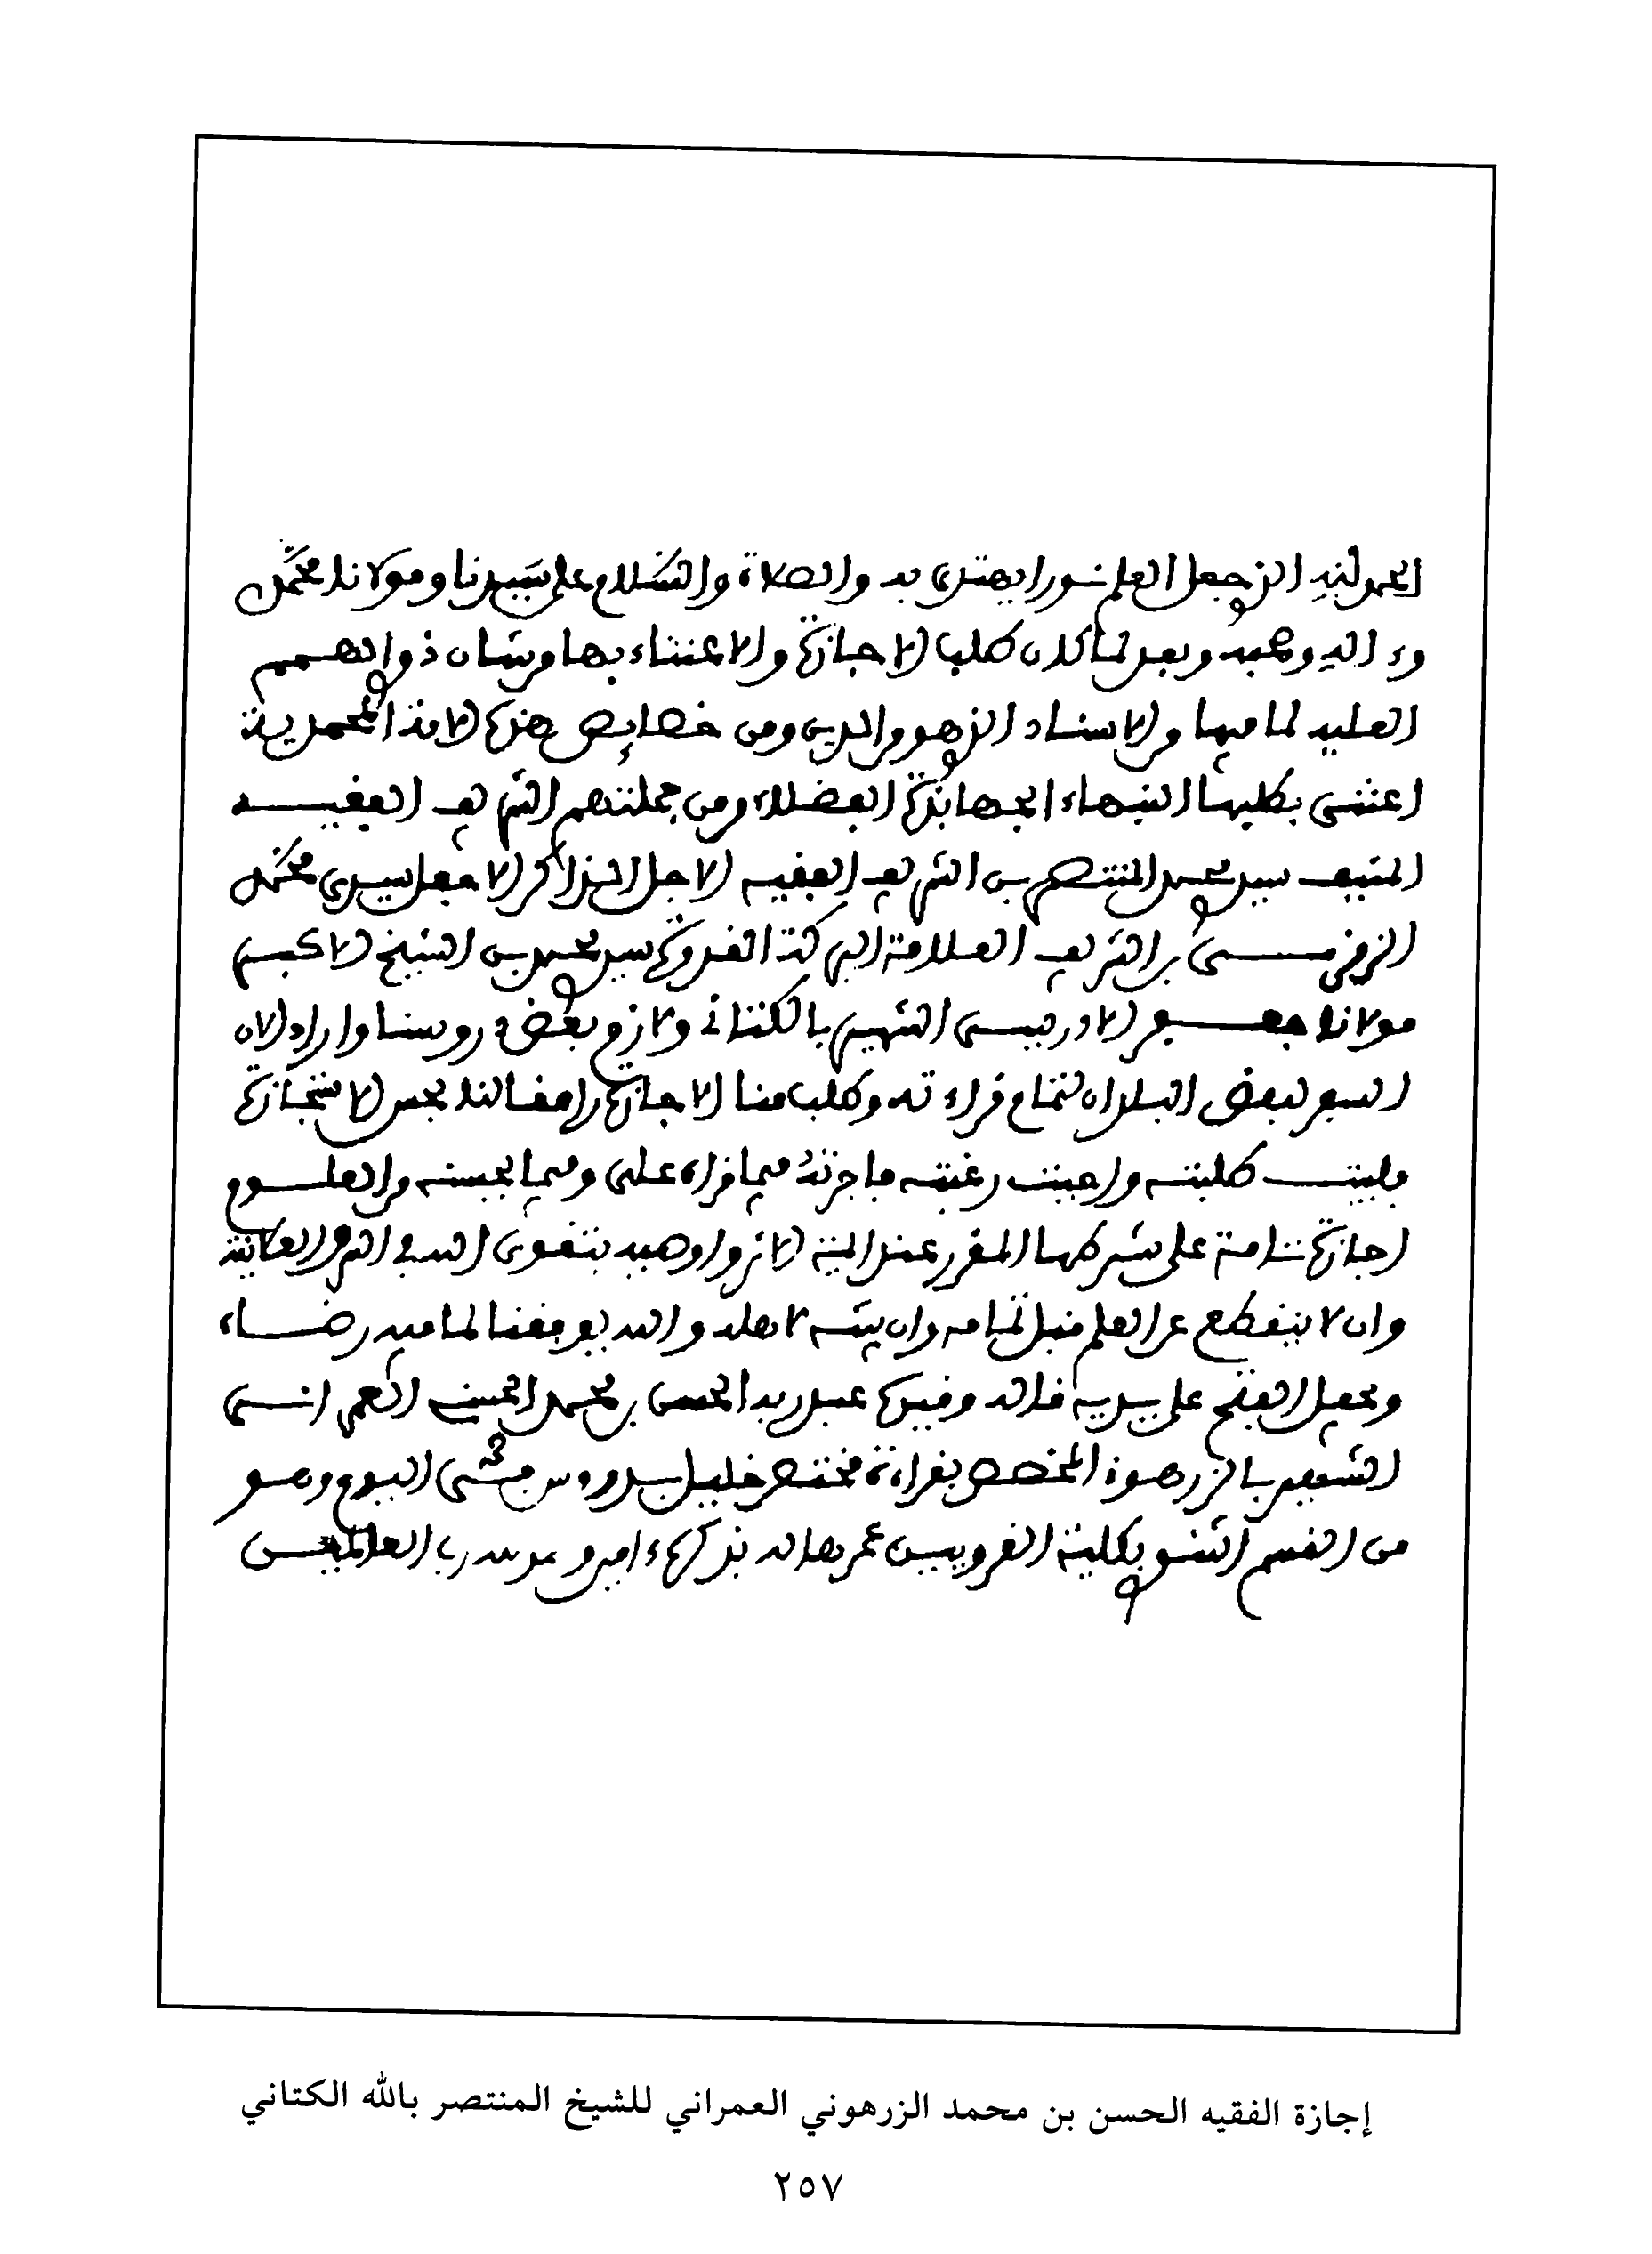 الحمد لله الذي جعل العلم نورا يهتدى به والصلاة والسلام على سيدنا ومولانا محمد
وءاله وصحبه وبعد لما كان طلب الاجازة والاعتناء بها من شان ذوي الهمم
العلية لما فيها من الاسناد الذي هو من الدين ومن خصايص هذه الامة المحمدية
اعتنى بطلبها النبهاء الجهابذة الفضلاء ومن جملتهم الشريف الفقيه
المنيف سيدي محمد المنتصر بن الشريف الفقيه الاجل الذاكر الافضل سيدي محمد
الزمزمي بن الشريف العلامة البركة القدوة سيدي محمد بن الشيخ الاكبر
مولانا جعفر الادريسي الشهير بالكتاني ولازم بعض دروسنا واراد الان
السفر لبعض البلدان لتمام قراءته وطلب منا الاجازة
فلبيت طلبته واجبت رغبته فاجزته فيما قراه علي وفيما من العلوم
اجازة تامة على شرطها المقرر عند ايمة الاثر واوصيه بتقوى الله في السر والعلانية
وان لا ينقطع عن العلم قبل تمامه وان يبثه لاهله والله يوفقنا لما فيه رضاه
ويجعل الفتح على يديه قاله وقيده عبد ربه الحسن بن محمد الحسني العمراني
الشهير بالزرهوني المخصص بقراءة مختصر خليل اليوم وهو
من القسم بكلية القرويين عمرها الله بذكره ءامين والحمد لله رب العالمين
إجازة الفقيه الحسن بن محمد الزرهوني العمراني للشيخ المنتصر بالله الكتاني
٢٥٧